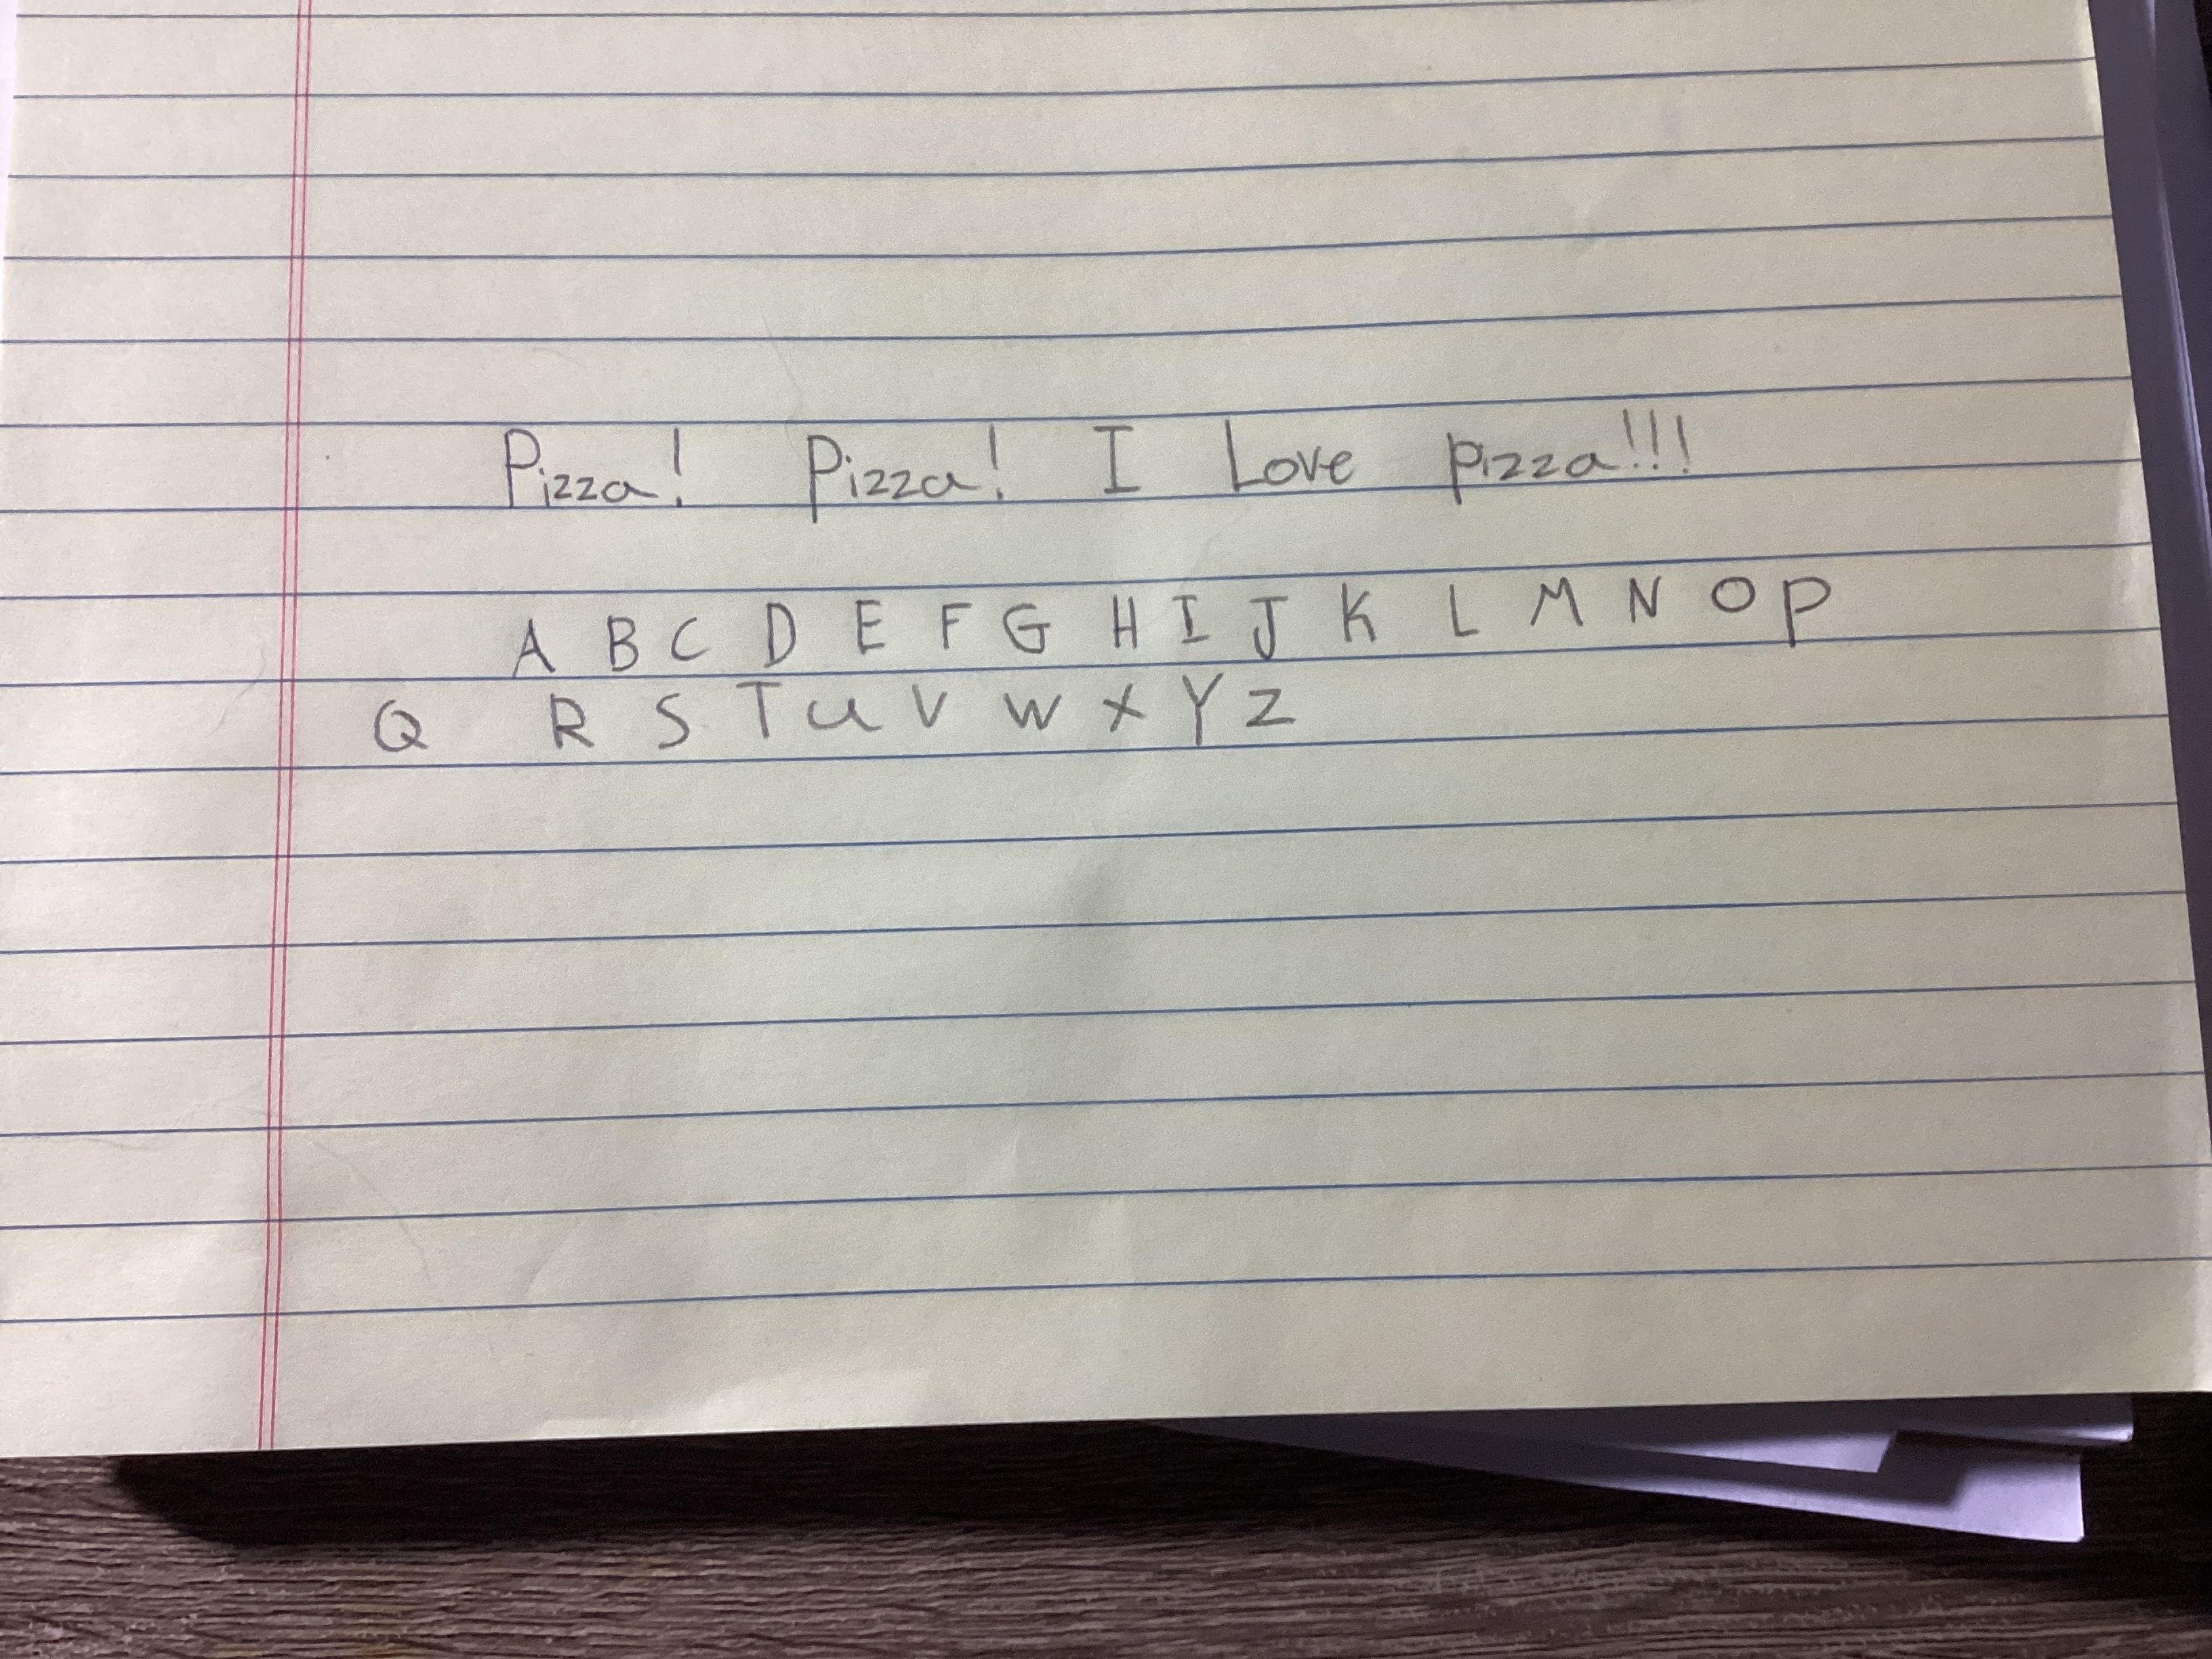 Pizza! Pizza! I Love pizza!!!
A B C D E F G H I J K L M N O P
Q R S T U V W X Y Z